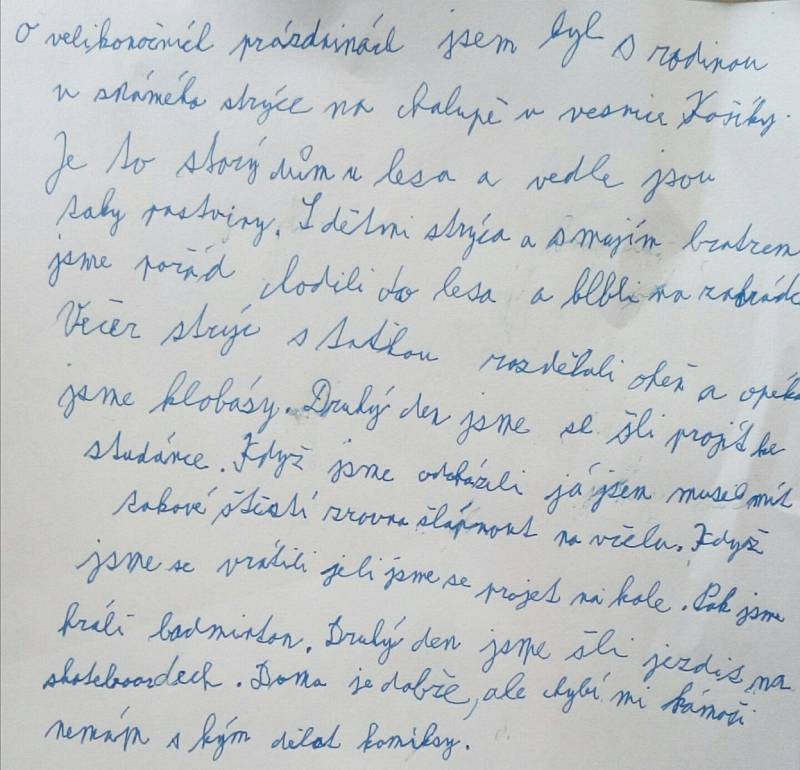 O velikonočních prázdninách jsem byl s rodinou
u známého strýce na chalupě v vesnice Košíky.
Je to starý dům u lesa a vedle jsou
taky pastviny. S dětmi strýca a s mojím bratrem
jsme pořád chodili do lesa a blbli na zahrádc
Večer strýc s taťkou rozdělali oheň a opéka
jsme klobásy. Druhý den jsme se šli projít ke
studánce. Když jsme odcházeli já jsem musel mít
takové štěstí zrovna šlápnout na včelu. Když
jsme se vrátili jeli jsme se projet na kole. Pak jsme
hráli badminton. Druhý den jsme šli jezdit na
skateboardech. Doma je dobře, ale chybí mi kámoši
nemám s kým dělat komiksy.